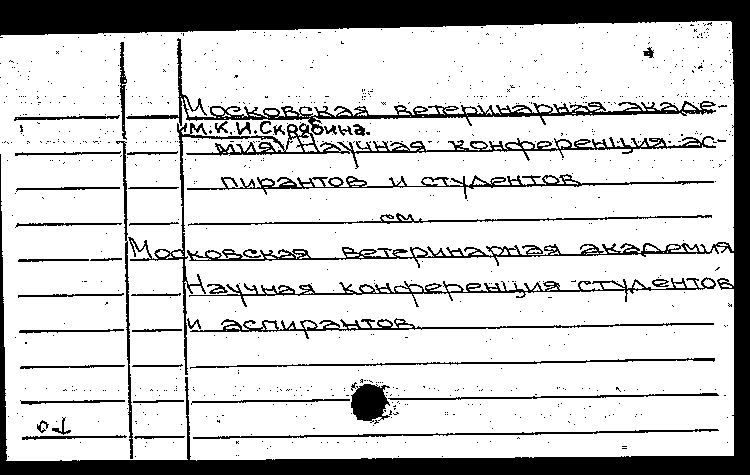 Московская ветеринарная акаде-
им. К.И. Скрябина.
мия√Научная конференция ас-
пирантов и студентов
см.
Московская ветеринарная академия
Научная конференция студентов
и аспирантов